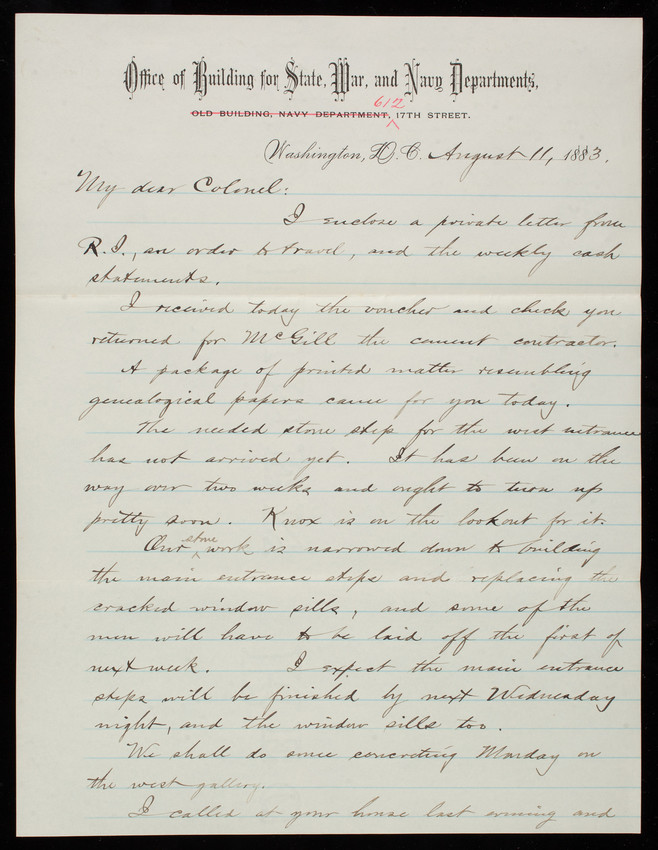 Office of Building for State, War, and Navy Departments,
612
OLD BUILDING, NAVY DEPARTMENT, 17TH STREET.
Washington, D.C. August 11, 1883.
My dear Colonel:
I enclose a private letter from
R.I., an order to travel, and the weekly cash
statements.
I received today the voucher and check you
returned for McGill the cement contractor.
A package of printed matter resembling
genealogical papers came for you today.
The needed stone step for the west entrance
has not arrived yet. It has been on the
way over two weeks and ought to turn up
pretty soon. Knox is on the lookout for it.
Our stone work is narrowed down to building
the main entrance steps and replacing the
cracked window sills, and some of the
men will have to be laid off the first of
next week. I expect the main entrance
steps will be finished by next Wednesday
night, and the window sills too.
We shall do some concreting Monday on
the west gallery.
I called at your house last evening and